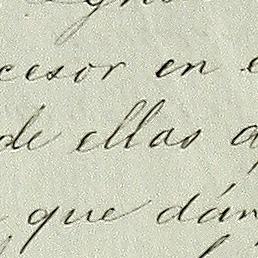 cesor en
de ellas
que dán